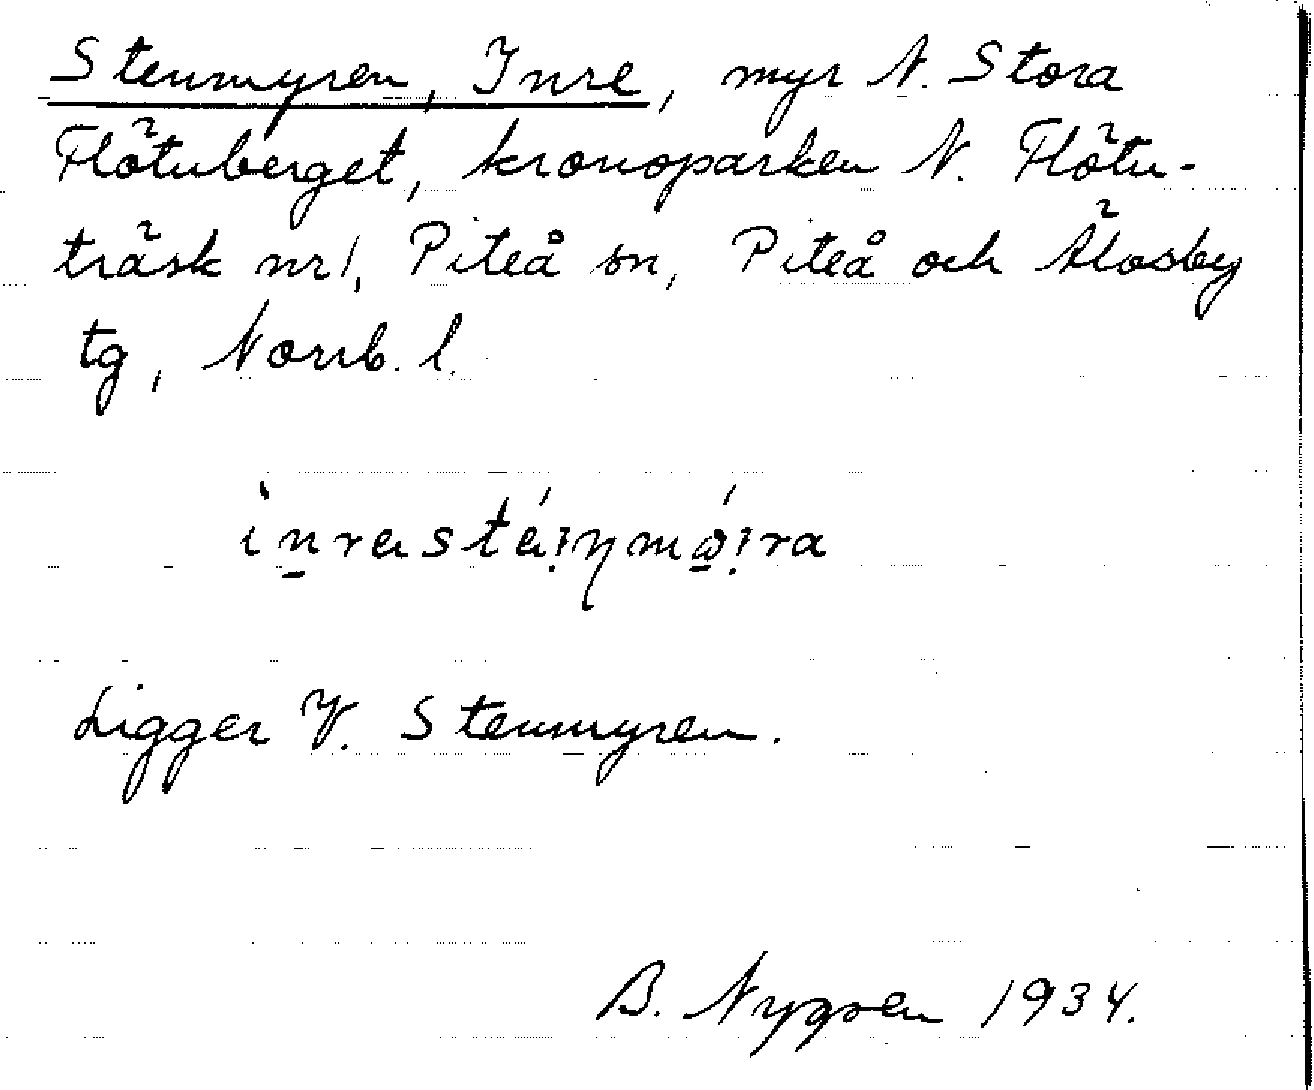 Stenmyren, Inre, myr N. Stora
Flötuberget, kronoparken N. Flötu-
träsk nr 1, Piteå sn, Piteå och Älvsby
tg, Norrb. l.
Ligger V. Stenmyren.
B. Nygren 1934.